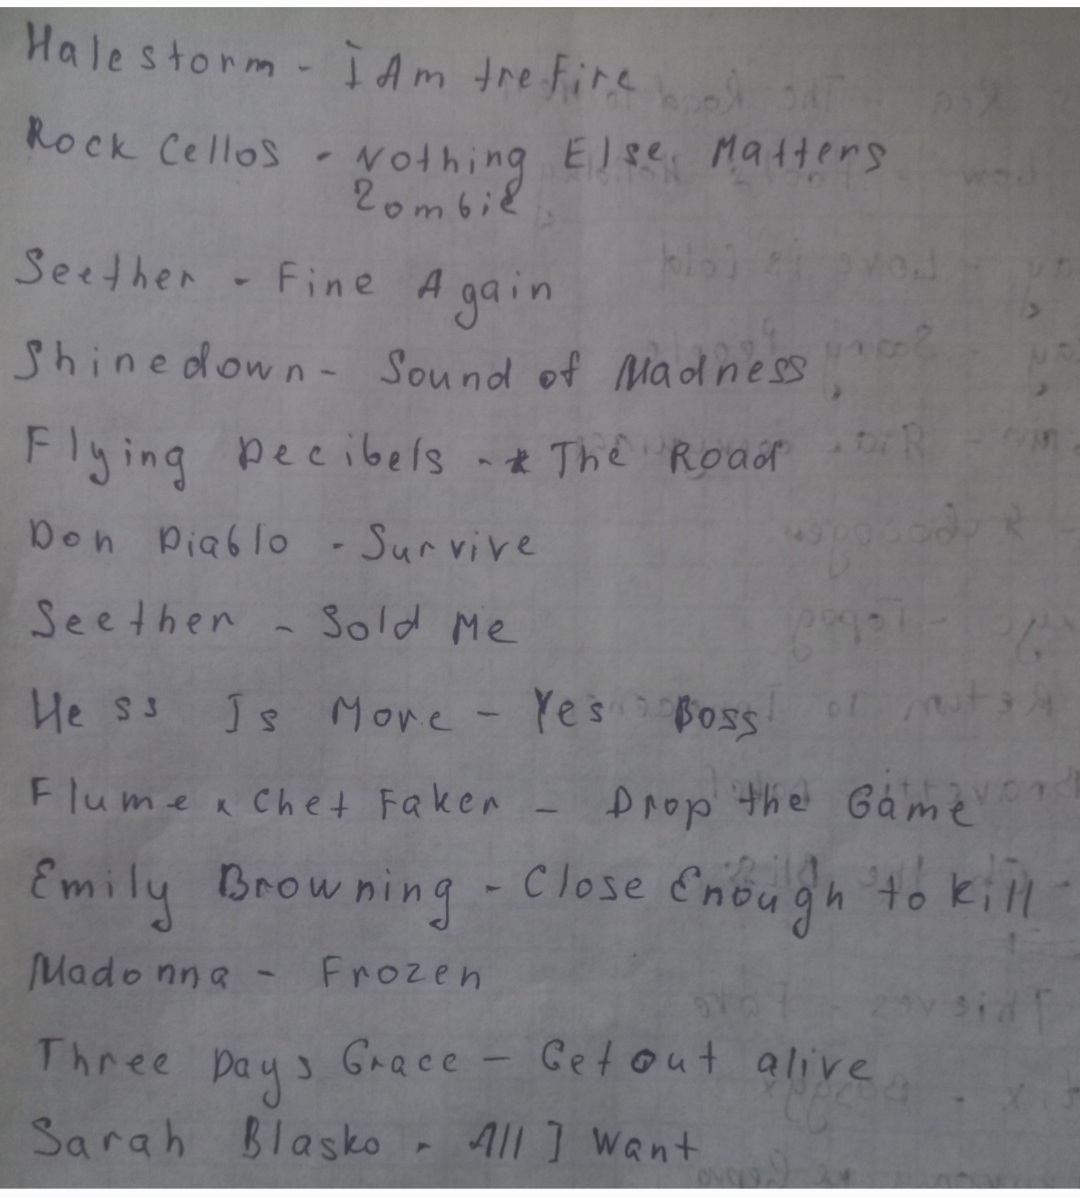 Halestorm - I Am tre Fire
Rock Cellos - Nothing Else Matters
Zombie
Seether - Fine Again
Shinedown - Sound of Madness
Flying Decibels - * The Road
Don Diablo - Survive
Seether - Sold Me
Hess Is More - Yes Boss
Flume x Chet Faker - Drop the Game
Emily Browning - Close Enough to kill
Madonna - Frozen
Three Days Grace - Get out alive
Sarah Blasko - All I want